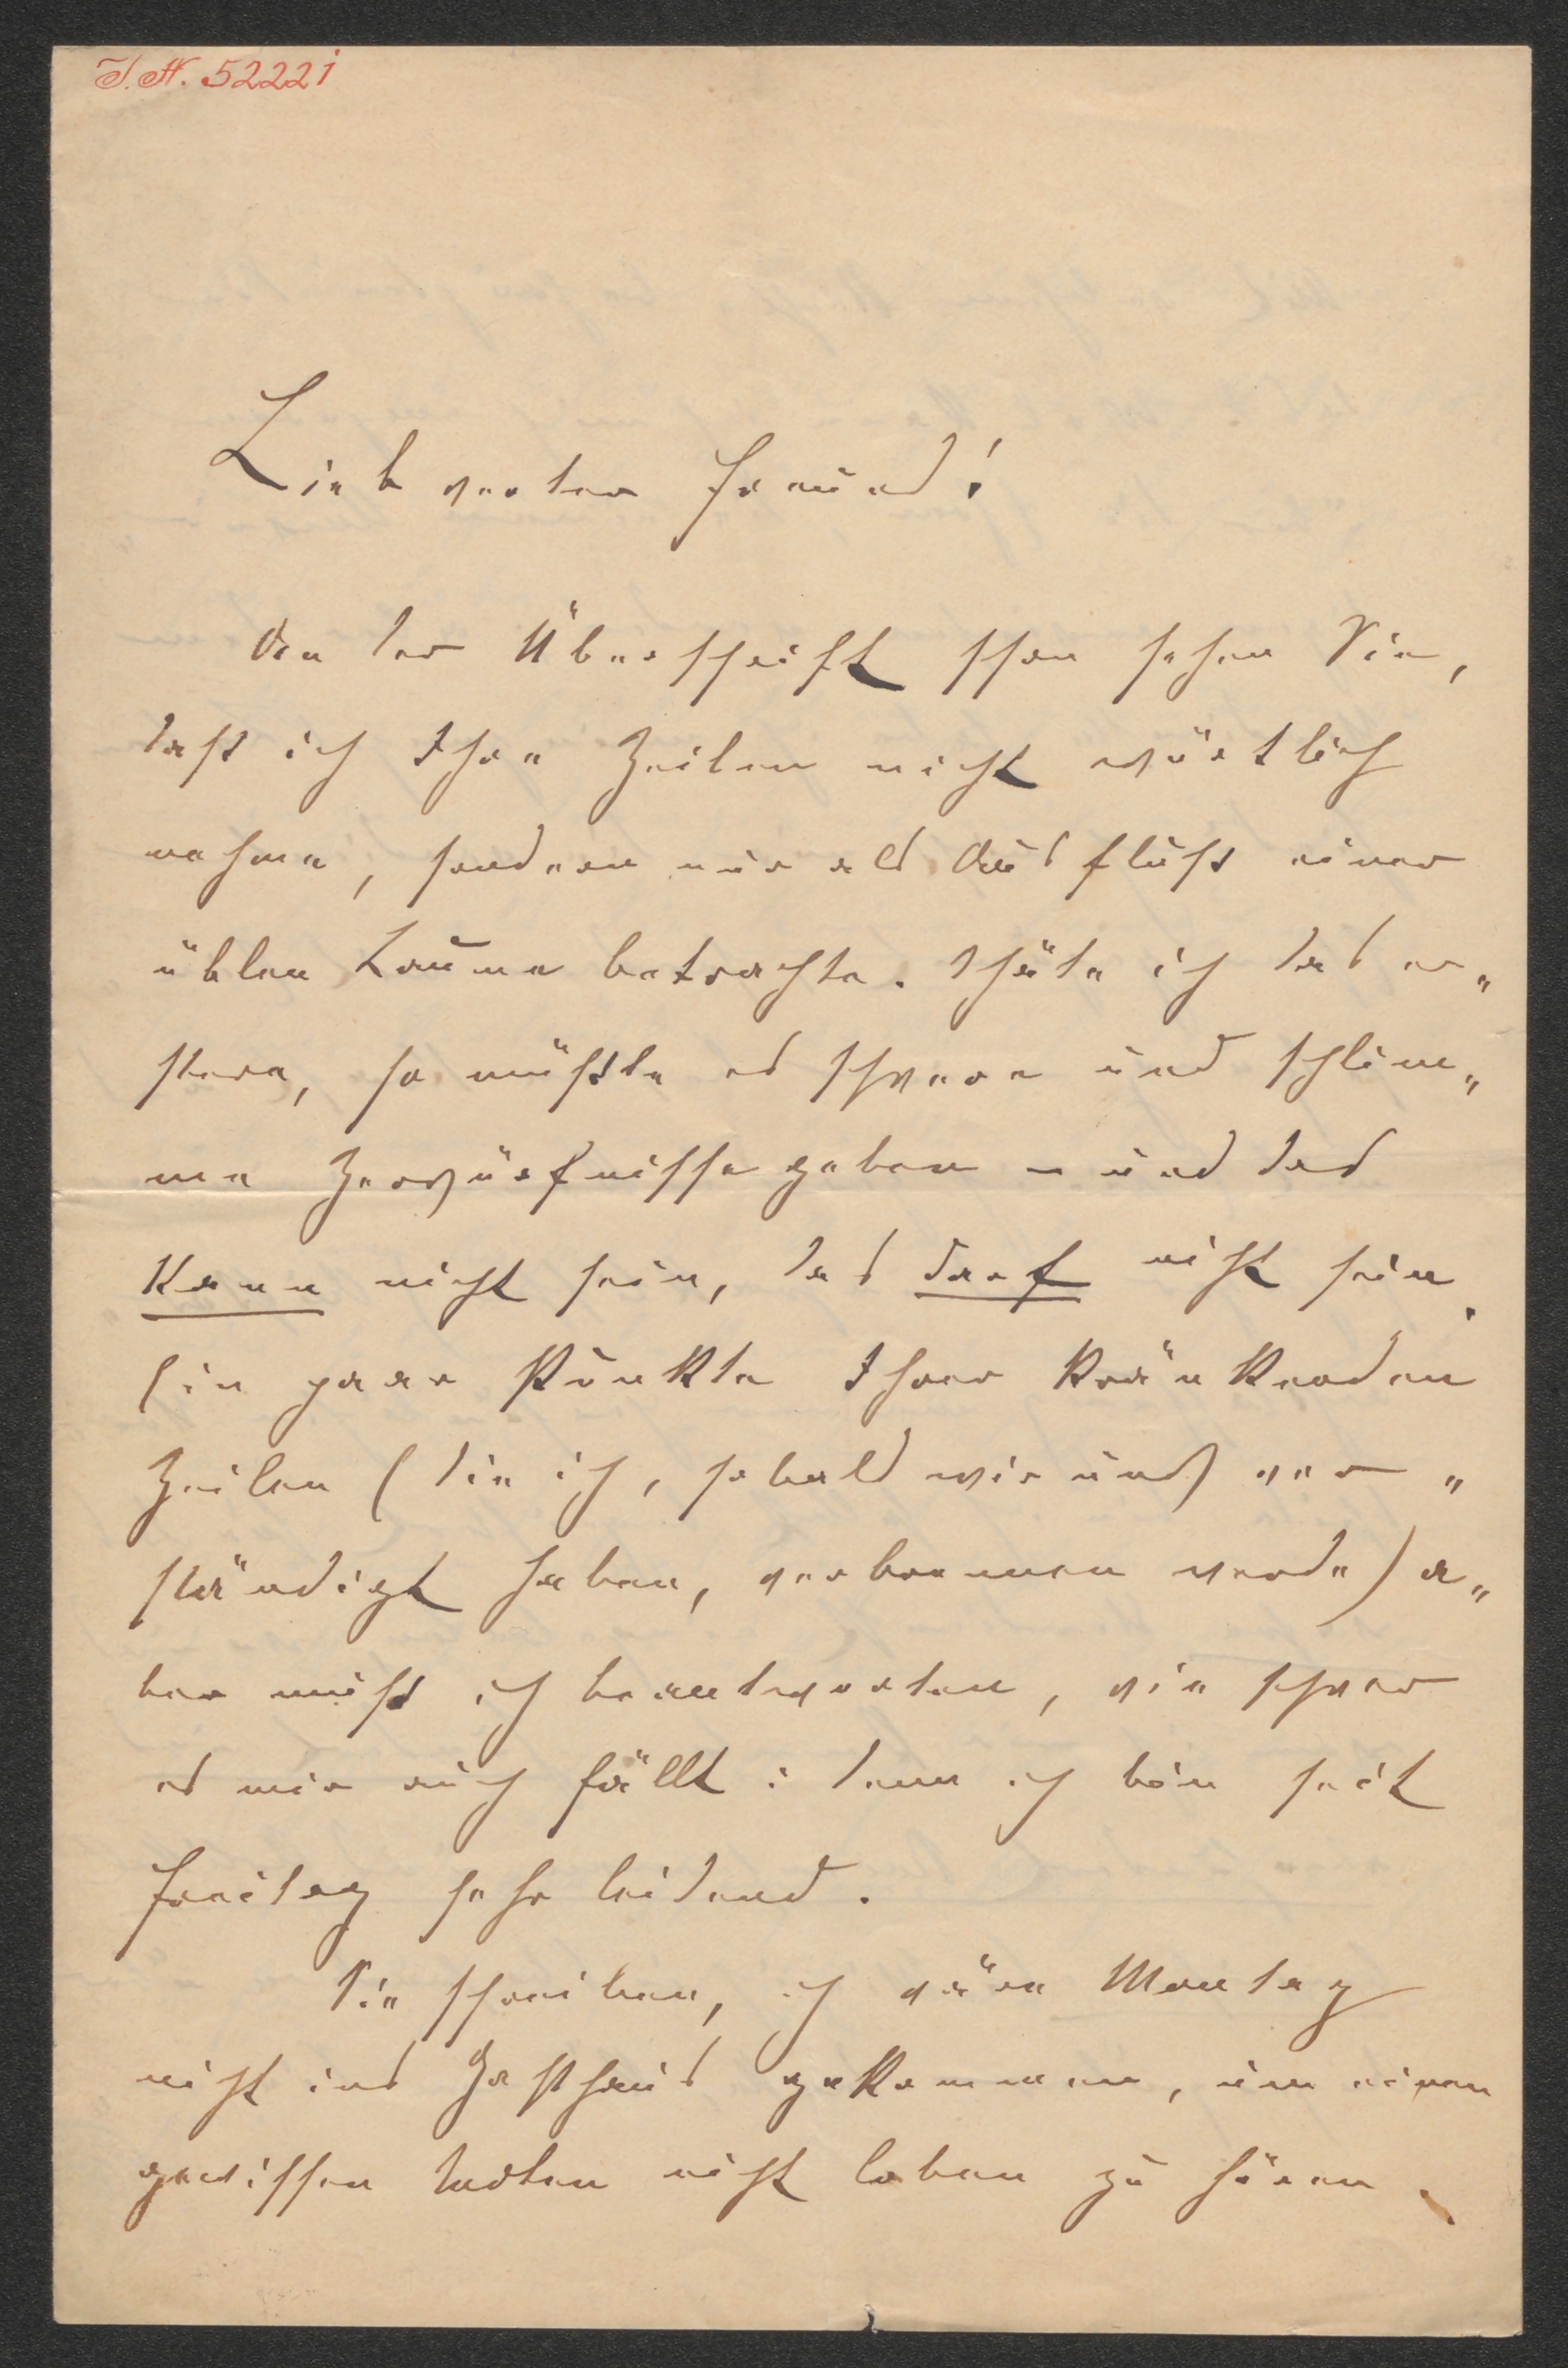 I.N. 52221
Liebwerter Freund!
An der Überschrift schon sehen Sie,
daß ich Ihre Zeilen nicht wörtlich
nehme, sondern nur als Ausfluß einer
üblen Laune betrachte. Thäte ich das er„
stere, so müßte es schwere und schlim„
me Zerwürfnisse geben – und das
kann nicht sein, das darf nicht sein.
Ein paar Punkte Ihrer kränkenden
Zeilen (die ich, sobald wir uns ver„
ständigt haben, verbrennen werde) a„
ber muß ich beantworten, wie schwer
es mir auch fällt: denn ich bin seit
Freitag sehr leidend.
Sie schreiben, ich wäre Montag
nicht ins Gasthaus gekommen, um einen
gewissen Todten nicht loben zu hören.